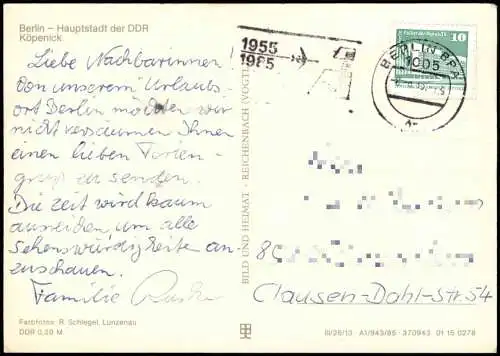 Berlin – Hauptstadt der DDR
Köpenick
Liebe Nachbarinnen
Von unserem Urlaubs-
ort Berlin möchten wir
nicht versäumen Ihnen
einen lieben Ferien-
gruß zu senden.
Die Zeit wird kaum
ausreichen um alle
Sehenswürdigkeiten an-
zuschauen.
Familie
Farbfotos: R. Schlegel, Lunzenau
DDR 0,20 M
BILD UND HEIMAT · REICHENBACH (VOGTL
1955
1985
10
BERLIN BPA
1005
80
Clausen-Dahl-Str 54
III/26/13 A1/943/85 370943 01 15 0278